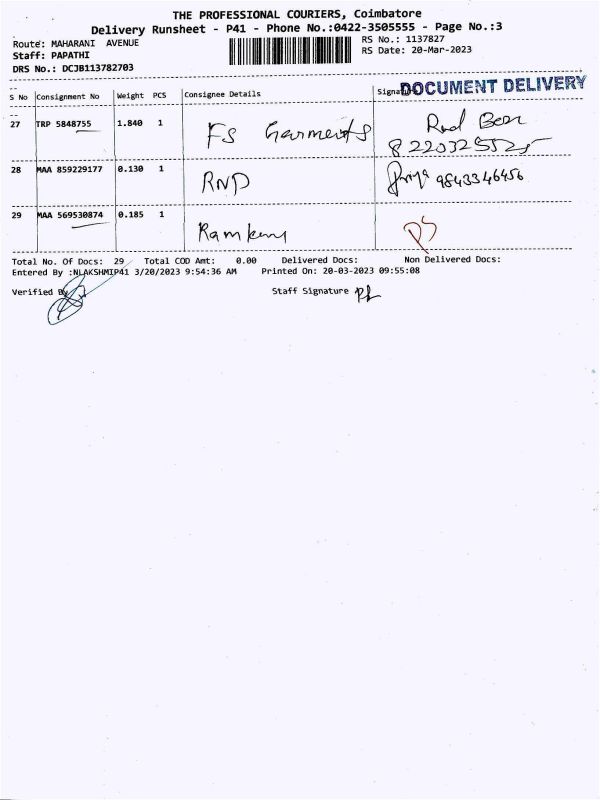 THE PROFESSIONAL COURIERS, Coimbatore
Delivery Runsheet - P41 - Phone No.:0422-3505555 - Page No.:3
Route: MAHARANI AVENUE
RS No.: 1137827
Staff: PAPATHI
RS Date: 20-Mar-2023
DRS No.: DCJB113782703
DOCUMENT DELIVERY
S No Consignment No Weight PCS Consignee Details
27 TRP 5848755 1.840 1 FS Garments
28 MAA 859229177 0.130 1 RND Priya 9843346456
29 MAA 569530874 0.185 1
Total No. Of Docs: 29 Total COD Amt: 0.00 Delivered Docs: Non Delivered Docs:
Entered By :NLAKSHMIP41 3/20/2023 9:54:36 AM Printed On: 20-03-2023 09:55:08
Verified By
Staff Signature